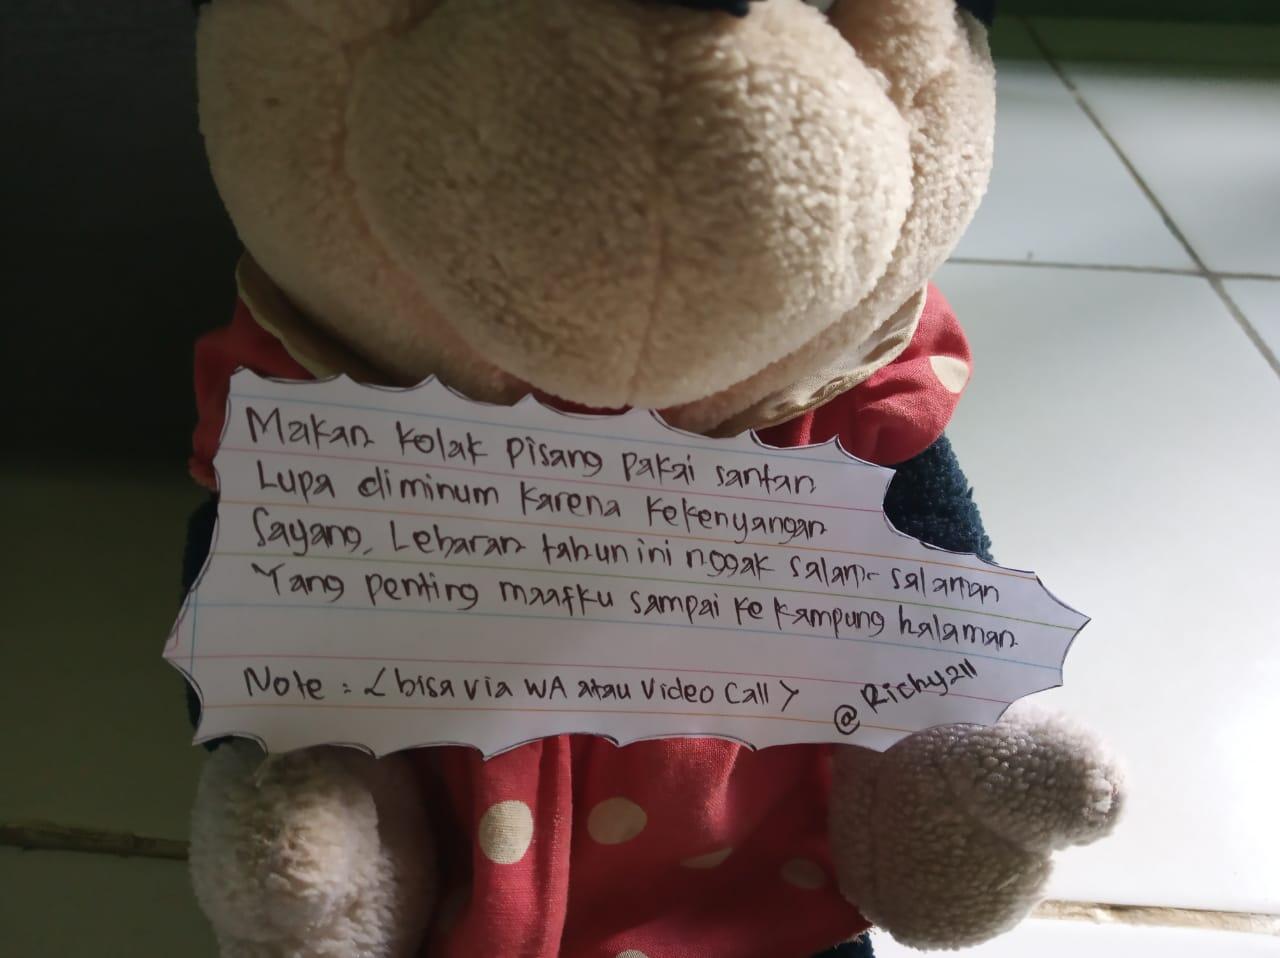 Makan kolak pisang pakai santan
Lupa diminum karena kekenyangan
Sayang, Lebaran tahun ini nggak salam-salaman
Yang penting maafku sampai ke kampung halaman
Note : < bisa via WA atau Video Call >
@Richy211